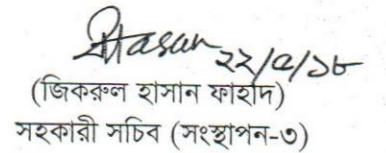 Hasan ২২/৫/১৮
(জিকরুল হাসান ফাহাদ)
সহকারী সচিব (সংস্থাপন-৩)